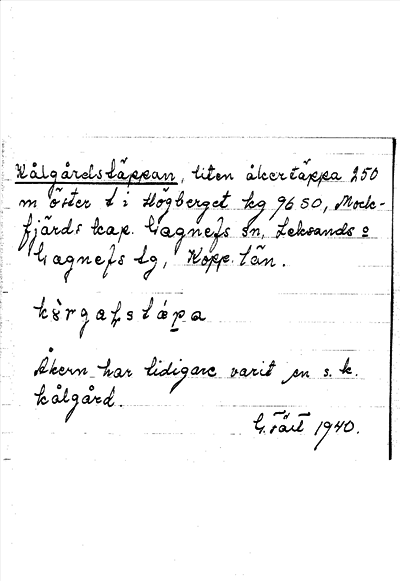 Kålgårdstäppan, liten åkertäppa 250
m öster t i Högberget kg 96 SO, Mock-
fjärds kap. Gagnefs sn, Leksands o
Gagnefs tg, Kopp. län.
Åkern har tidigare varit en s.k.
kålgård.
1940.